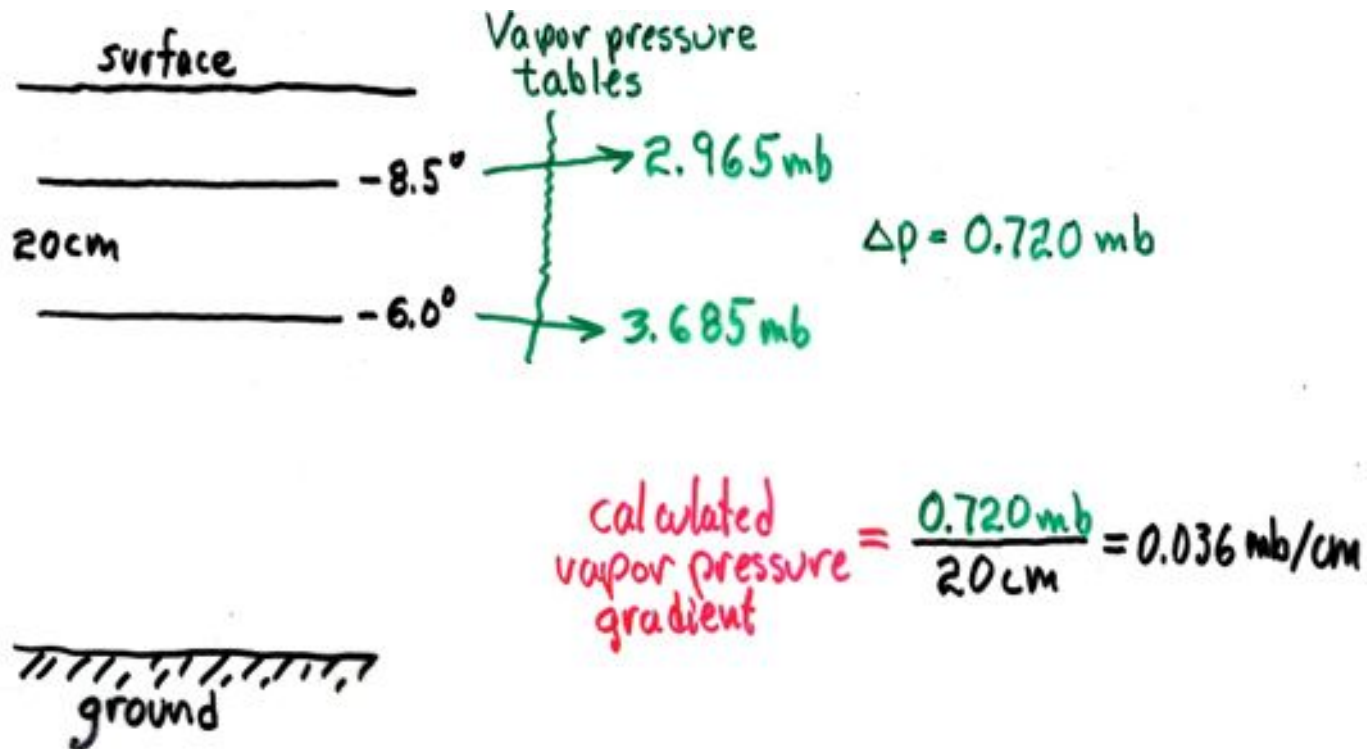 surface
Vapor pressure
tables
-8.5° 2.965 mb
20cm
Δp = 0.720 mb
-6.0° 3.685 mb
calculated
vapor pressure
gradient
= 0.720 mb / 20 cm = 0.036 mb/cm
ground